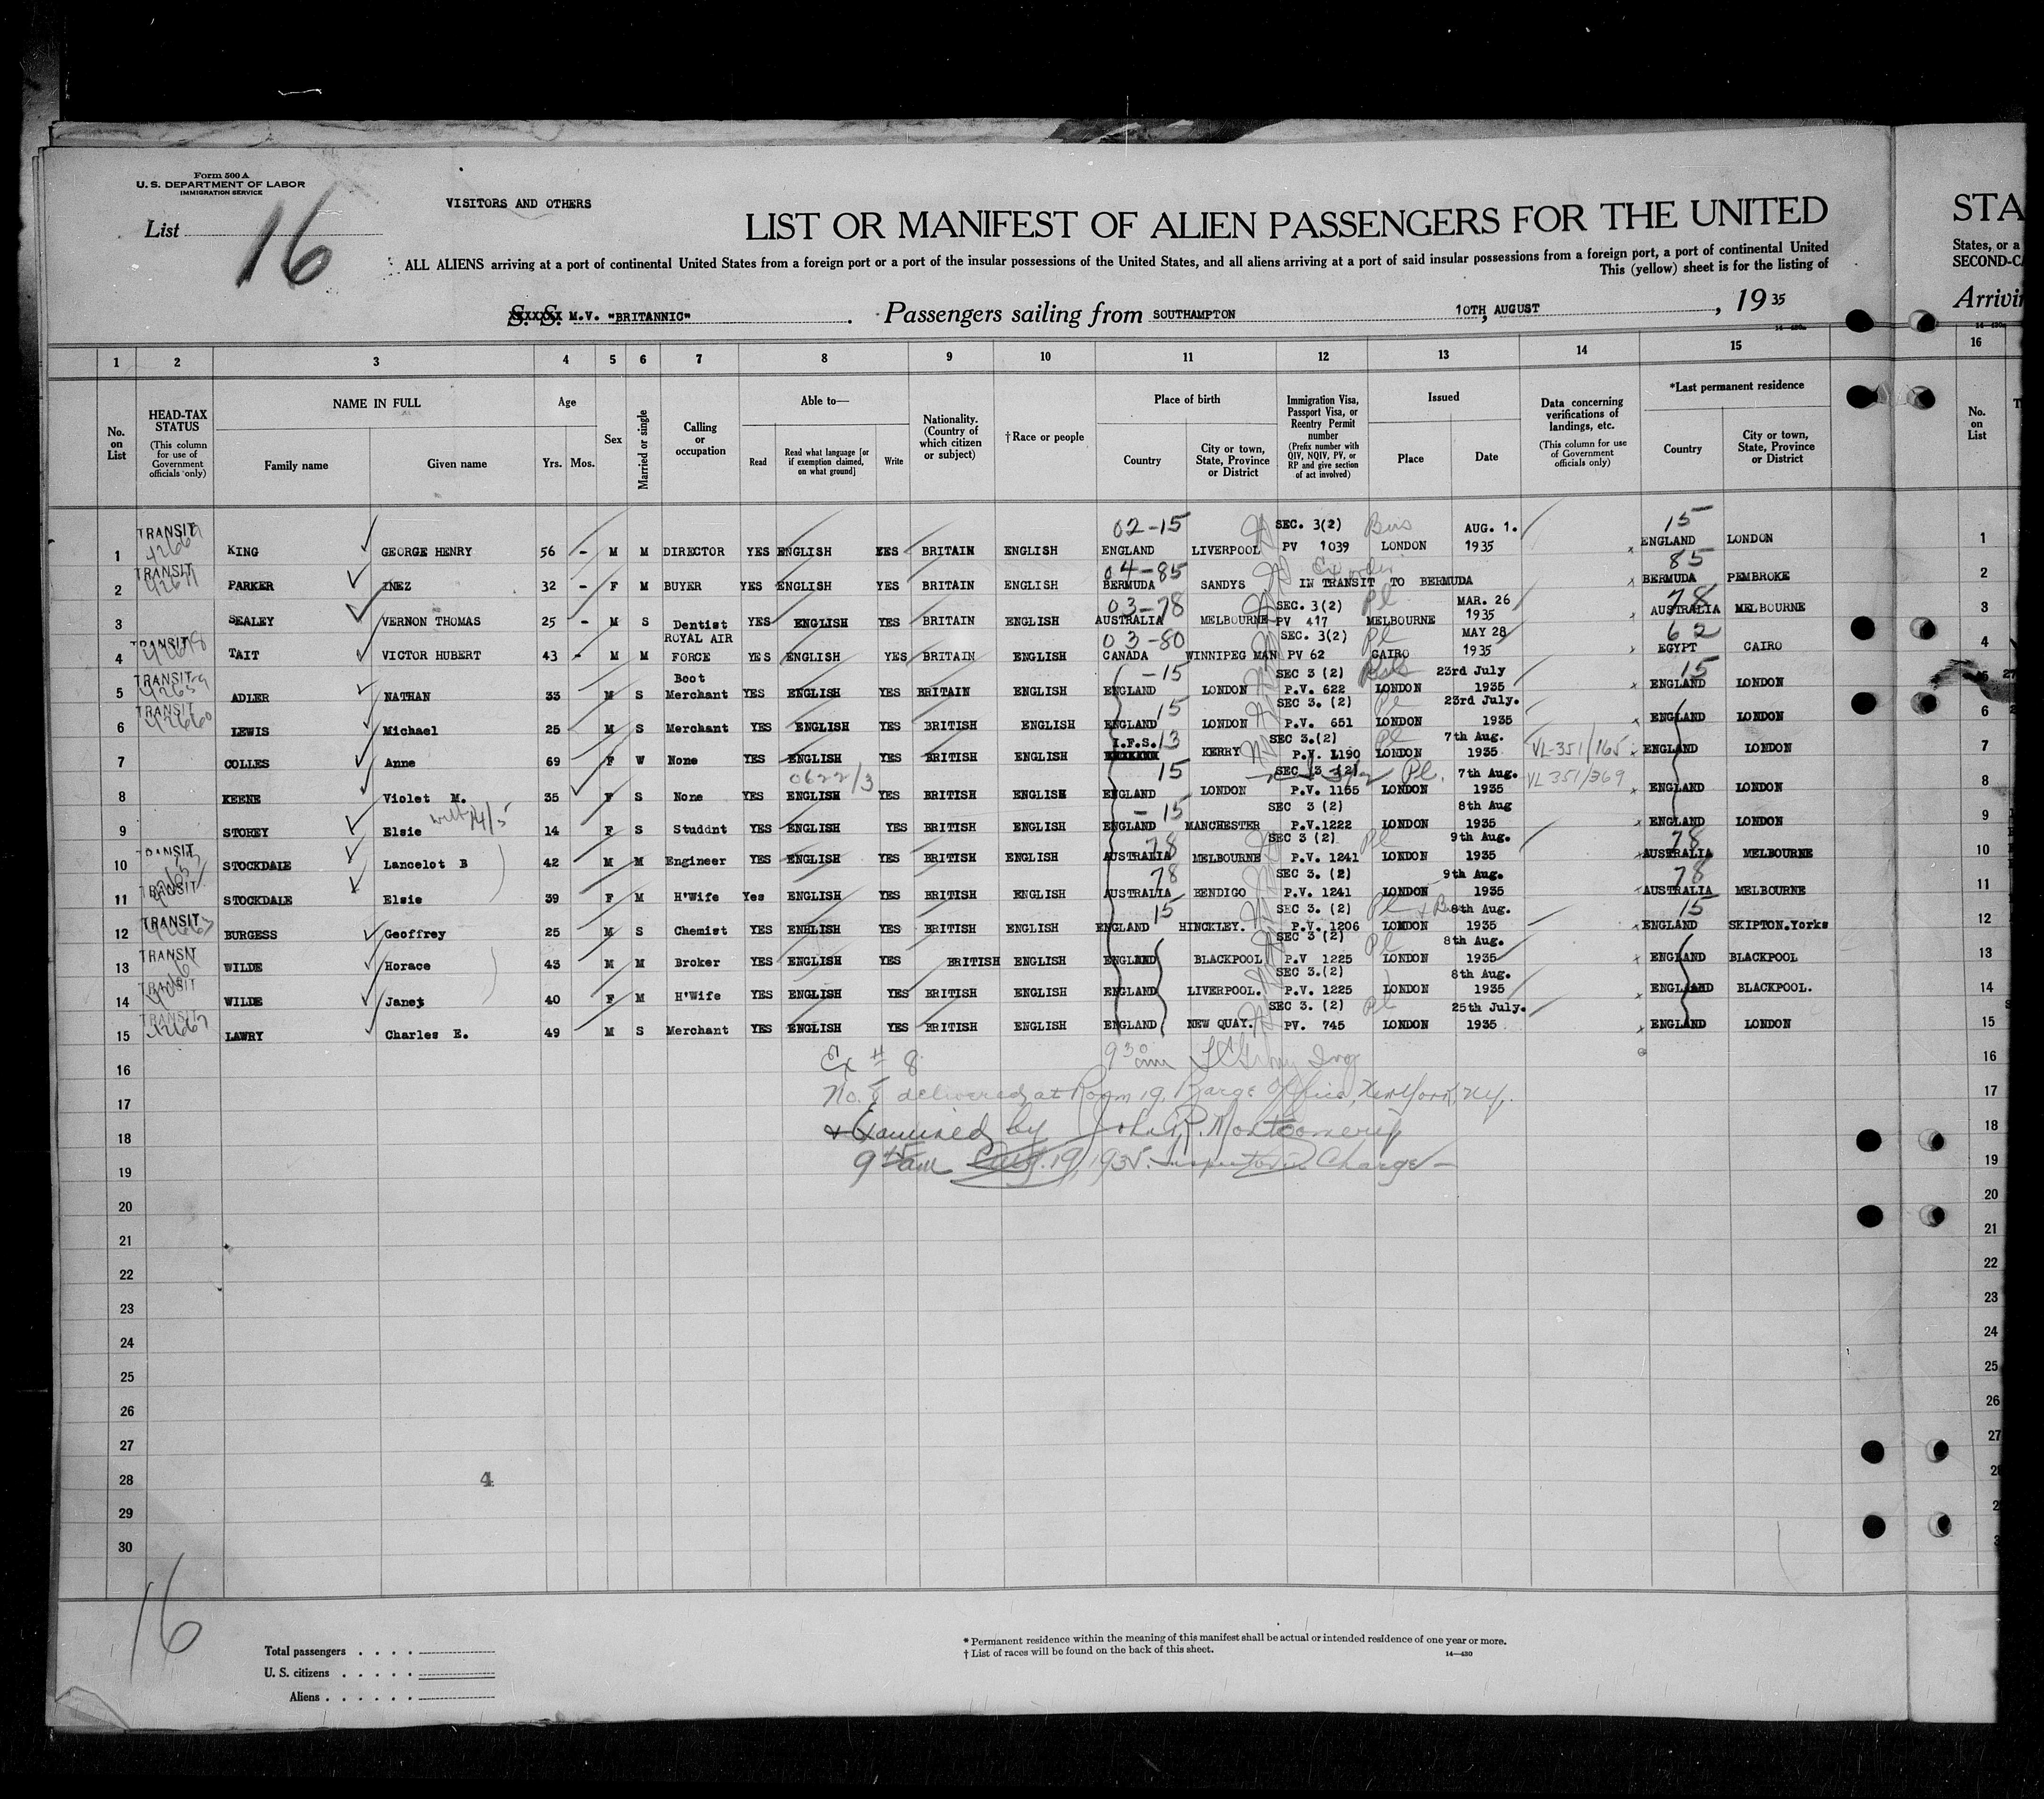 Form 500 A
U. S. DEPARTMENT OF LABOR
IMMIGRATION SERVICE
List 16
VISITORS AND OTHERS
LIST OR MANIFEST OF ALIEN PASSENGERS FOR THE UNITED
STA
ALL ALIENS arriving at a port of continental United States from a foreign port or a port of the insular possessions of the United States, and all aliens arriving at a port of said insular possessions from a foreign port, a port of continental United
States, or a
This (yellow) sheet is for the listing of
SECOND-CA
S. S. M.V. "BRITANNIC". Passengers sailing from SOUTHAMPTON 10TH, AUGUST, 1935
Arrivin
1 2 3 4 5 6 7 8 9 10 11 12 13 14 15 16
No. on List
HEAD-TAX STATUS (This column for use of Government officials only)
NAME IN FULL Family name Given name
Age Yrs. Mos.
Sex
Married or single
Calling or occupation
Able to— Read Read what language [or if exemption claimed, on what ground] Write
Nationality. (Country of which citizen or subject)
†Race or people
Place of birth Country City or town, State, Province or District
Immigration Visa, Passport Visa, or Reentry Permit number (Prefix number with QIV, NQIV, PV, or RP and give section of act involved)
Issued Place Date
Data concerning verifications of landings, etc. (This column for use of Government officials only)
*Last permanent residence Country City or town, State, Province or District
No. on List
02-15 SEC. 3(2) Bus AUG. 1. 15
1 TRANSIT KING GEORGE HENRY 56 - M M DIRECTOR YES ENGLISH YES BRITAIN ENGLISH ENGLAND LIVERPOOL PV 1039 LONDON 1935 ENGLAND LONDON 1
04-85 85
2 TRANSIT PARKER INEZ 32 - F M BUYER YES ENGLISH YES BRITAIN ENGLISH BERMUDA SANDYS IN TRANSIT TO BERMUDA BERMUDA PEMBROKE 2
03-78 SEC. 3(2) Pl MAR. 26 78
3 SEALEY VERNON THOMAS 25 - M S Dentist YES ENGLISH YES BRITAIN ENGLISH AUSTRALIA MELBOURNE PV 417 MELBOURNE 1935 AUSTRALIA MELBOURNE 3
ROYAL AIR 03-80 SEC. 3(2) Pl MAY 28 62
4 TRANSIT TAIT VICTOR HUBERT 43 - M M FORCE YES ENGLISH YES BRITAIN ENGLISH CANADA WINNIPEG MAN PV 62 CAIRO 1935 EGYPT CAIRO 4
Boot -15 SEC 3 (2) 23rd July 15
5 TRANSIT 42659 ADLER NATHAN 33 M S Merchant YES ENGLISH YES BRITAIN ENGLISH ENGLAND LONDON P.V. 622 LONDON 1935 ENGLAND LONDON 5
15 SEC 3. (2) Pl 23rd July.
6 TRANSIT 42660 LEWIS Michael 25 M S Merchant YES ENGLISH YES BRITISH ENGLISH ENGLAND LONDON P.V. 651 LONDON 1935 ENGLAND LONDON 6
I.F.S. 13 SEC 3.(2) Pl 7th Aug.
7 COLLES Anne 69 F W None YES ENGLISH YES BRITISH ENGLISH KERRY P.V. 1190 LONDON 1935 VL-351/165 ENGLAND LONDON 7
0622/3 15 SEC 3 (2) Pl. 7th Aug.
8 KEENE Violet M. 35 F S None YES ENGLISH YES BRITISH ENGLISH ENGLAND LONDON P.V. 1165 LONDON 1935 VL 351/369 ENGLAND LONDON 8
14/5 - 15 SEC 3 (2) 8th Aug
9 STOREY Elsie 14 F S Studdnt YES ENGLISH YES BRITISH ENGLISH ENGLAND MANCHESTER P.V.1222 LONDON 1935 ENGLAND LONDON 9
78 SEC 3 (2) Pl 9th Aug. 78
10 TRANSIT STOCKDALE Lancelot B 42 M M Engineer YES ENGLISH YES BRITISH ENGLISH AUSTRALIA MELBOURNE P.V. 1241 LONDON 1935 AUSTRALIA MELBOURNE 10
78 SEC 3. (2) 9th Aug. 78
11 TRANSIT STOCKDALE Elsie 39 F M H'Wife Yes ENGLISH YES BRITISH ENGLISH AUSTRALIA BENDIGO P.V. 1241 LONDON 1935 AUSTRALIA MELBOURNE 11
15 SEC 3. (2) Pl 8th Aug. 15
12 TRANSIT BURGESS Geoffrey 25 M S Chemist YES ENHLISH YES BRITISH ENGLISH ENGLAND HINCKLEY. P.V. 1206 LONDON 1935 ENGLAND SKIPTON.Yorks 12
SEC 3 (2) Pl 8th Aug.
13 TRANSIT WILDE Horace 43 M M Broker YES ENGLISH YES BRITISH ENGLISH ENGLAND BLACKPOOL P.V 1225 LONDON 1935 ENGLAND BLACKPOOL 13
SEC 3.(2) 8th Aug.
14 TRANSIT WILDE Janet 40 F M H'Wife YES ENGLISH YES BRITISH ENGLISH ENGLAND LIVERPOOL. P.V. 1225 LONDON 1935 ENGLAND BLACKPOOL. 14
SEC 3. (2) Pl 25th July.
15 TRANSIT 42667 LAWRY Charles E. 49 M S Merchant YES ENGLISH YES BRITISH ENGLISH ENGLAND NEW QUAY. PV. 745 LONDON 1935 ENGLAND LONDON 15
16 Ex # 8 9 30 am 16
17 No. 8 delivered at Room 19, Barge Office, New York, N.Y. 17
18 & Examined by John R. Montgomery 18
19 9 45 am Aug. 19, 1935. Inspector in Charge 19
20 20
21 21
22 22
23 23
24 24
25 25
26 26
27 27
28 4
29
30
16
Total passengers
U. S. citizens
Aliens
* Permanent residence within the meaning of this manifest shall be actual or intended residence of one year or more.
† List of races will be found on the back of this sheet.
14—430